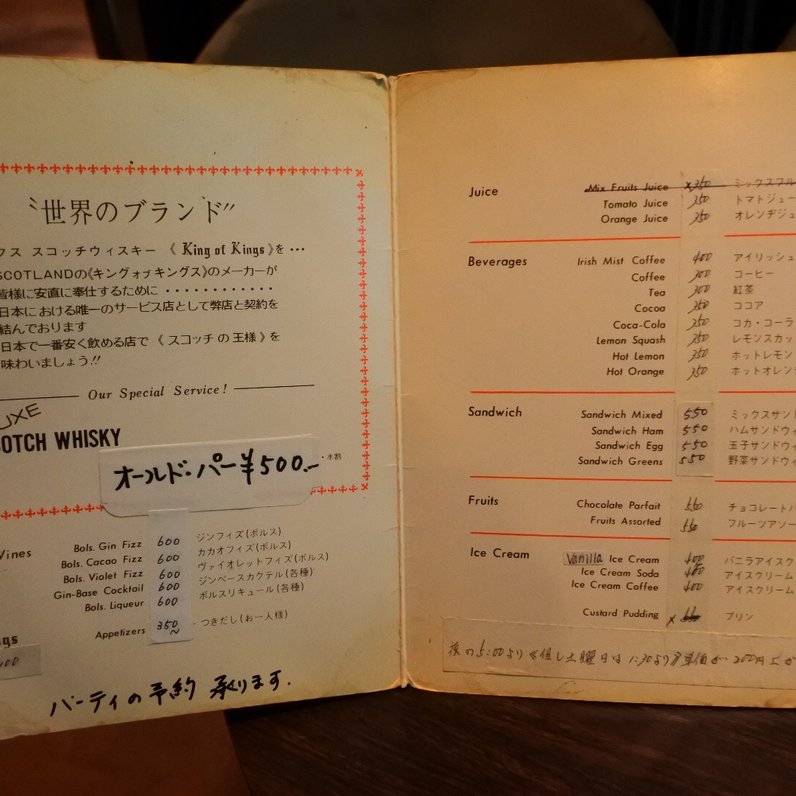 〝世界のブランド〞
クス スコッチウィスキー 《 King of Kings 》を・・・
SCOTLANDの《キングオブキングス》のメーカーが
皆様に安直に奉仕するために ・・・・・・・・・・・・
日本における唯一のサービス店として弊店と契約を
結んでおります
日本で一番安く飲める店で 《 スコッチの王様 》を
味わいましょう!!
Our Special Service!
UXE
SCOTCH WHISKY
・水割
オールド・パー¥500.—
Wines
Bols. Gin Fizz 600 ジンフィズ(ボルス)
Bols. Cacao Fizz 600 カカオフィズ(ボルス)
Bols. Violet Fizz 600 ヴァイオレットフィズ(ボルス)
Gin-Base Cocktail 600 ジンベースカクテル(各種)
Bols. Liqueur 600 ボルスリキュール(各種)
Appetizers 350〜 つきだし(お一人様)
パーティの予約 承ります.
Juice Mix Fruits Juice x350 ミックスフル
Tomato Juice 350 トマトジュー
Orange Juice 350 オレンヂジュ
Beverages Irish Mist Coffee 400 アイリッシュ
Coffee 300 コーヒー
Tea 300 紅茶
Cocoa 350 ココア
Coca-Cola 350 コカ・コーラ
Lemon Squash 350 レモンスカッ
Hot Lemon 350 ホットレモン
Hot Orange 350 ホットオレン
Sandwich Sandwich Mixed 550 ミックスサンド
Sandwich Ham 550 ハムサンドウィ
Sandwich Egg 550 玉子サンドウィ
Sandwich Greens 550 野菜サンドウィ
Fruits Chocolate Parfait 550 チョコレートパ
Fruits Assorted 550 フルーツアソー
Ice Cream Vanilla Ice Cream 400 バニラアイスク
Ice Cream Soda 400 アイスクリーム
Ice Cream Coffee 400 アイスクリーム
Custard Pudding x プリン
夜の5:00より 但し土曜日は1:30より 単価が 200円